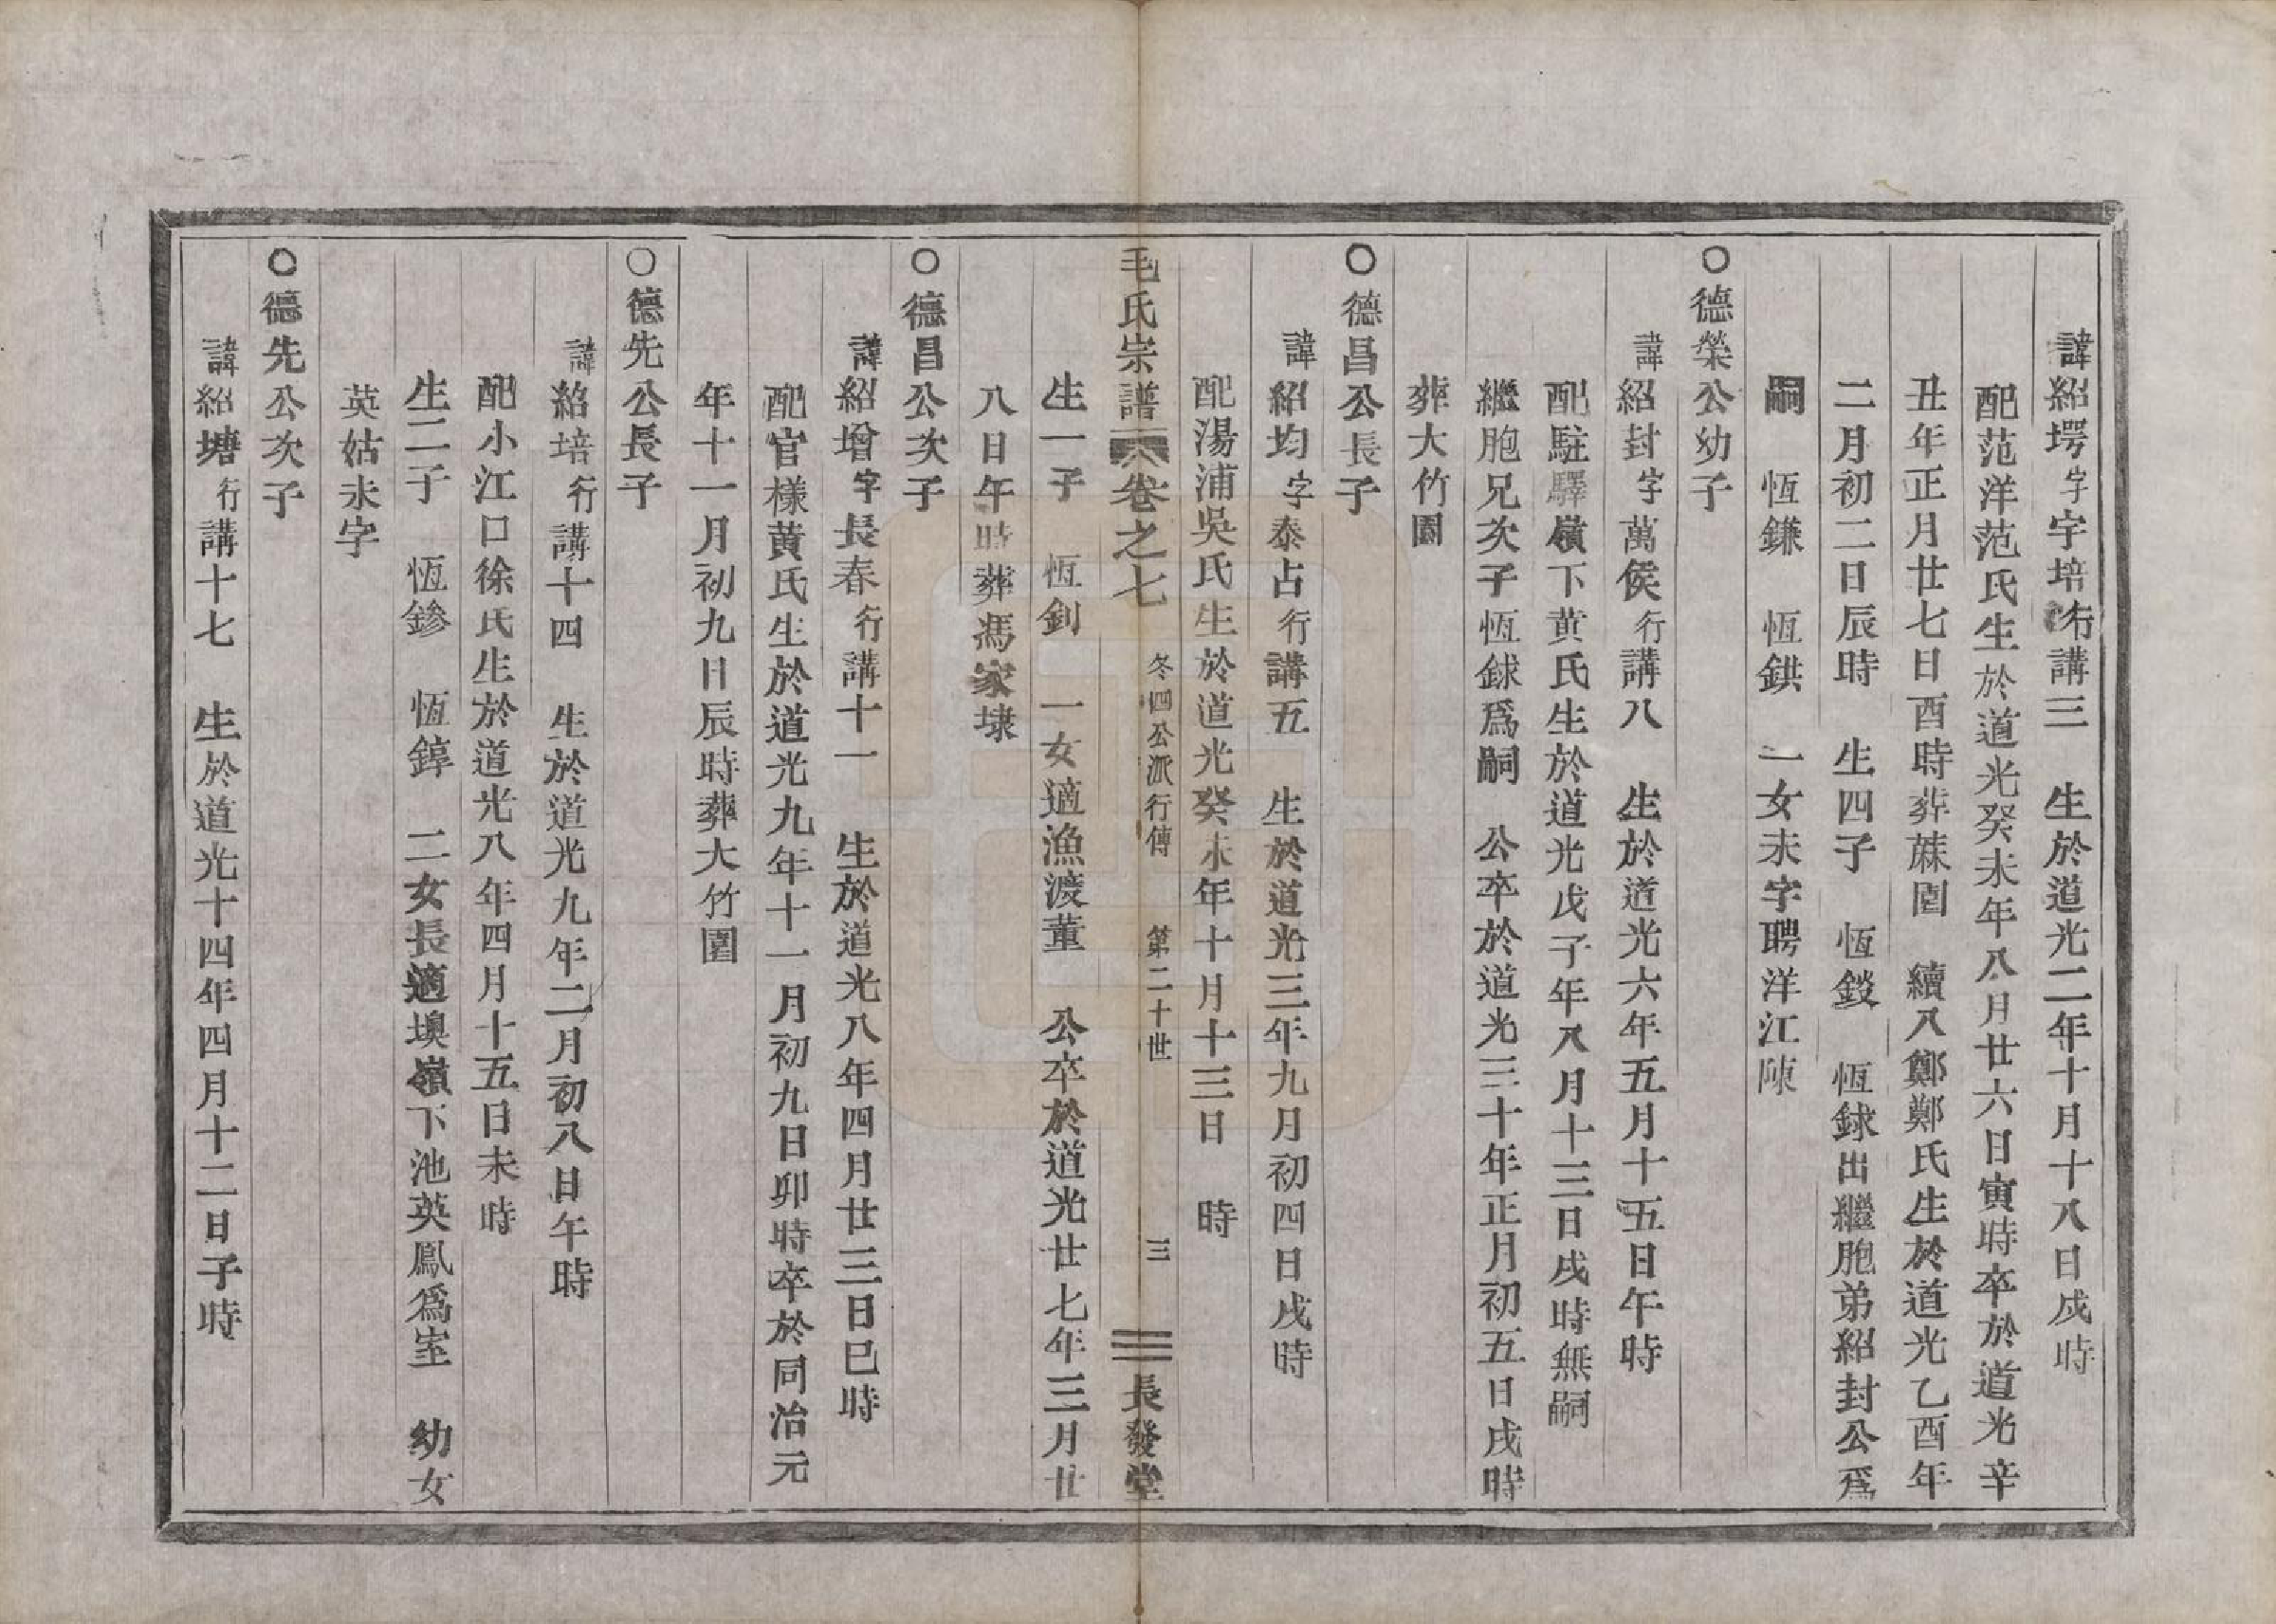 諱紹堮字字培行講三　生於道光二年十月十八日戍時
配范洋范氏生於道光癸未年八月廿六日寅時卒於道光辛
丑年正月廿七日酉時葬蔴園　續八鄭鄭氏生於道光乙酉年
二月初二日辰時　生四子　恆錟　恆銶出繼胞弟紹封公爲
嗣　恆鎌　恆鉷　一女未字聘洋江陳
○德榮公幼子
諱紹封字萬侯行講八　生於道光六年五月十五日午時
配駐驛嶺下黄氏生於道光戊子年八月十三日戌時無嗣
繼胞兄次子恆銶爲嗣　公卒於道光三十年正月初五日戌時
葬大竹園
○德昌公長子
諱紹均字泰占行講五　生於道光三年九月初四日戌時
配湯浦吳氏生於道光癸未年十月十三日　時
毛氏宗譜　卷之七　冬四公派行傳　第二十世　三　長發堂
生一子　恆釗　一女適漁渡董　公卒於道光廿七年三月廿
八日午時葬馮家埭
○德昌公次子
諱紹增字長春行講十一　生於道光八年四月廿三日巳時
配官樣黄氏生於道光九年十一月初九日卯時卒於同治元
年十一月初九日辰時葬大竹園
○德先公長子
諱紹培行講十四　生於道光九年二月初八日午時
配小江口徐氏生於道光八年四月十五日未時
生二子　恆鉁　恆錞　二女長適墺嶺下池英鳳爲室　幼女
英姑未字
○德先公次子
諱紹塘行講十七　生於道光十四年四月十二日子時